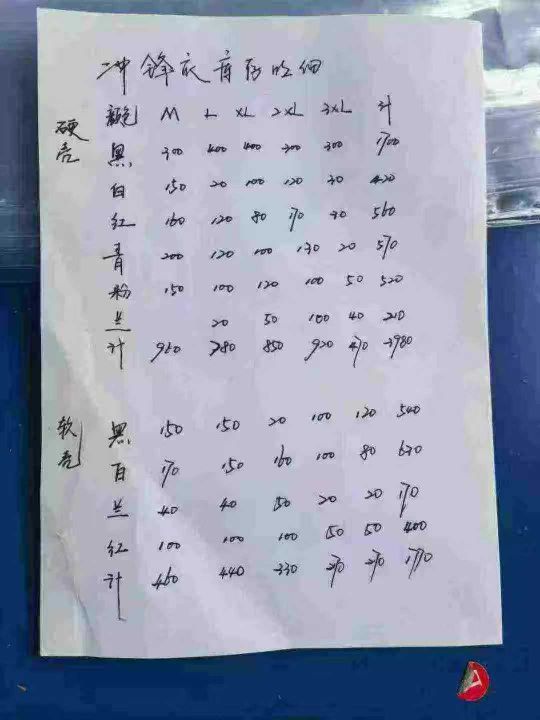 冲锋衣库存明细
硬壳 颜色 M L XL 2XL 3XL 计
黑 300 400 400 300 300 1700
白 150 20 100 120 30 420
红 160 120 80 170 30 560
青 200 120 100 130 20 570
粉 150 100 120 100 50 520
兰 20 50 100 40 210
计 960 780 850 920 470 3980
软壳 黑 150 150 20 100 120 540
白 170 150 160 100 80 630
兰 40 40 50 20 20 170
红 100 100 100 50 50 400
计 460 440 330 270 270 1770